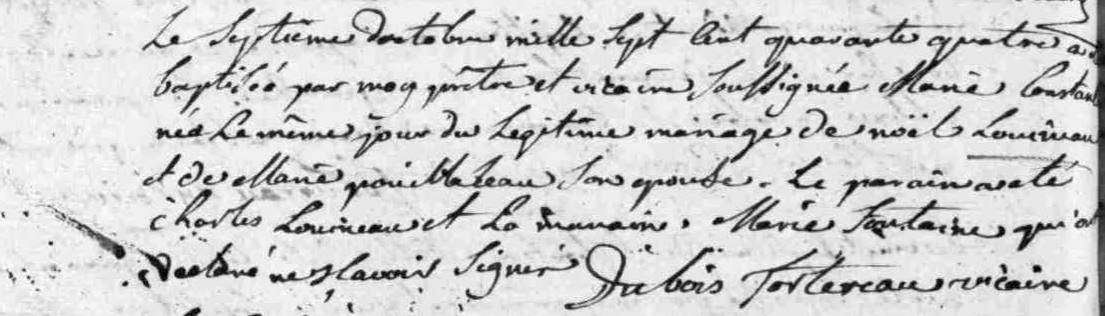 Le Septième doctobre mille Sept Cent quarante quatre a
baptisée par moy prêtre et vicaire Soussignée Marie Constan
née Le même jour du Legitime mariage de noël Louineau
et de Marie Son epouse. Le parain a eté
Charles Louineau et La maraine Marie fontaine qui
declaré ne Sçavoir Signer Dubois fortereau vicaire